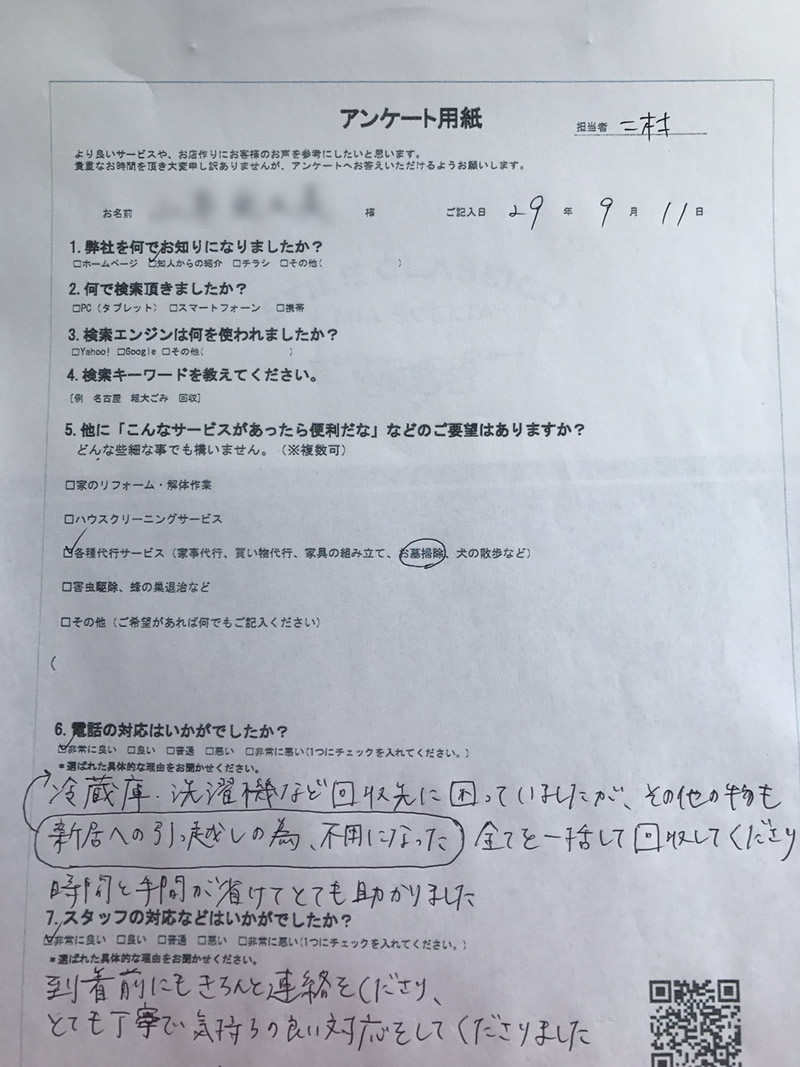 アンケート用紙
担当者 二村
より良いサービスや、お店作りにお客様のお声を参考にしたいと思います。
貴重なお時間を頂き大変申し訳ありませんが、アンケートへお答えいただけるようお願いします。
お名前 様 ご記入日 29 年 9 月 11 日
1. 弊社を何でお知りになりましたか？
□ホームページ ☑知人からの紹介 □チラシ □その他( )
2. 何で検索頂きましたか？
□PC（タブレット） □スマートフォーン □携帯
3. 検索エンジンは何を使われましたか？
□Yahoo! □Google □その他( )
4. 検索キーワードを教えてください。
[例 名古屋 粗大ごみ 回収]
5. 他に「こんなサービスがあったら便利だな」などのご要望はありますか？
どんな些細な事でも構いません。（※複数可）
□家のリフォーム・解体作業
□ハウスクリーニングサービス
☑各種代行サービス（家事代行、買い物代行、家具の組み立て、お墓掃除、犬の散歩など）
□害虫駆除、蜂の巣退治など
□その他（ご希望があれば何でもご記入ください）
(
6. 電話の対応はいかがでしたか？
☑非常に良い □良い □普通 □悪い □非常に悪い(1つにチェックを入れてください。)
*選ばれた具体的な理由をお聞かせください。
冷蔵庫・洗濯機など回収先に困っていましたが、その他の物も
新居への引っ越しの為、不用になった 全てを一括して回収してくださり
時間と手間が省けてとても助かりました
7. スタッフの対応などはいかがでしたか？
☑非常に良い □良い □普通 □悪い □非常に悪い(1つにチェックを入れてください。)
*選ばれた具体的な理由をお聞かせください。
到着前にもきちんと連絡をくださり、
とても丁寧で気持ちの良い対応をしてくださりました